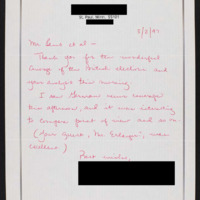 St. Paul, Minn. 55101
5/2/97
Mr. et al —
Thank you for the wonderful
coverage of the British elections and
your analysis this morning.
I saw German news coverage
this afternoon, and it was interesting
to compare points of view and so on.
(Your guest, Mr. , was
excellent)
Best wishes,